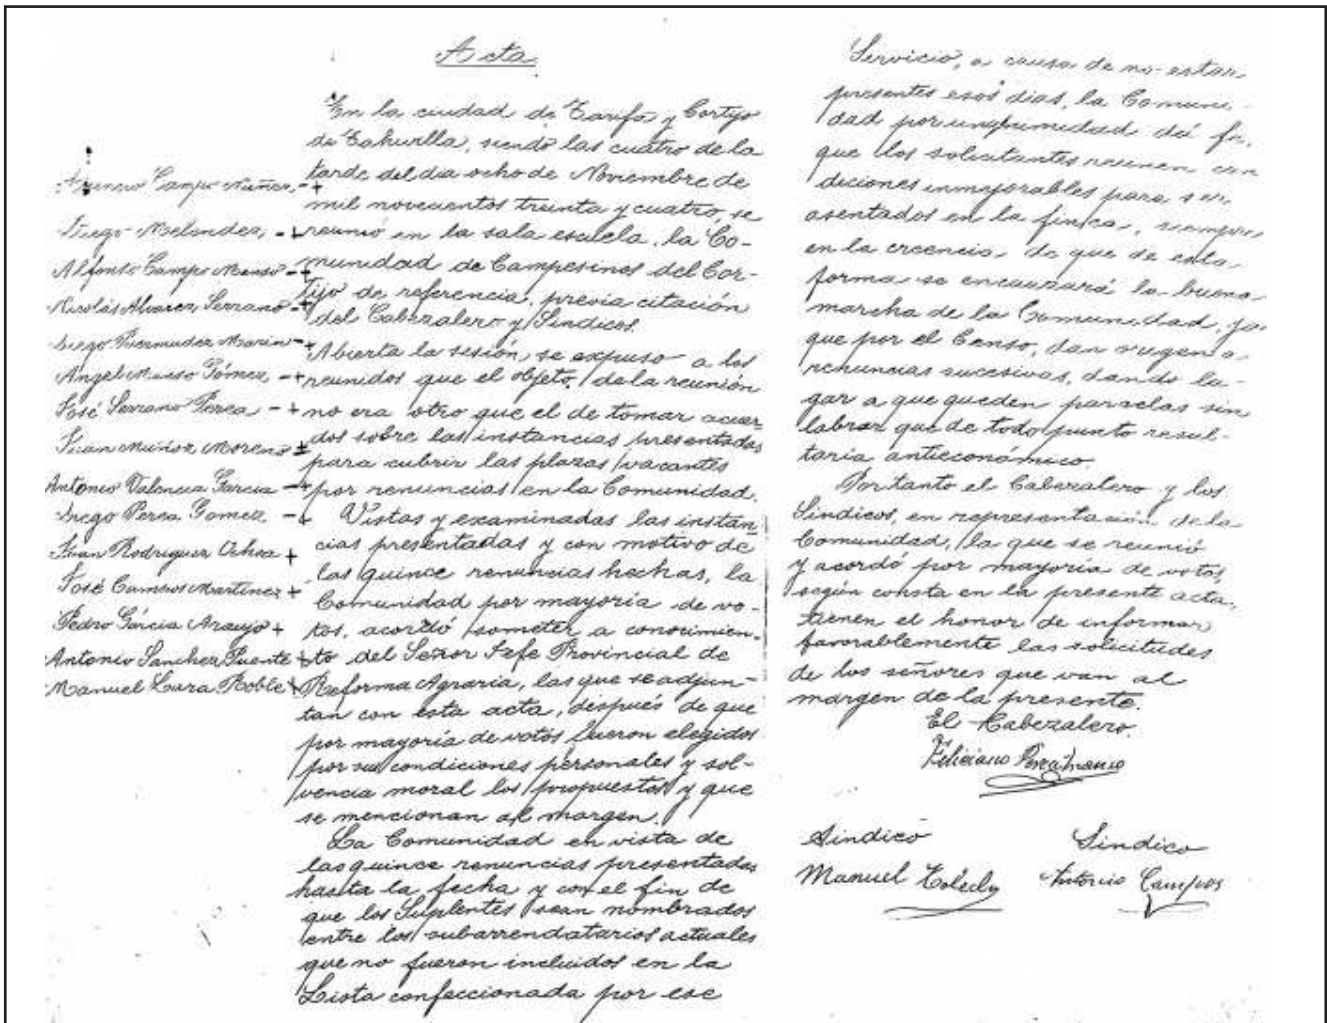 Acta
Campo Muñoz
Diego Melendez
Alfonso Campo Manso
Nicolás Alvarez Serrano
Diego Bermudez Marin
Angel Manso Gómez
José Serrano Perea
Juan Muñoz Moreno
Antonio Valencia Garcia
Diego Perea Gomez
Juan Rodriguez Ochoa
José Campos Martinez
Pedro Garcia Araujo
Antonio Sanchez Puente
Manuel Lara Roble
En la ciudad de Tarifa y Cortijo
de Tahivilla, siendo las cuatro de la
tarde del dia ocho de Noviembre de
mil novecientos treinta y cuatro, se
reunió en la sala escuela, la Co-
munidad de Campesinos del Cor-
tijo de referencia, previa citación
del Cabezalero y Sindicos.
Abierta la sesión, se expuso a los
reunidos que el objeto de la reunión
no era otro que el de tomar acuer
dos sobre las instancias presentadas
para cubrir las plazas vacantes
por renuncias en la Comunidad.
Vistas y examinadas las instan
cias presentadas y con motivo de
las quince renuncias hechas, la
Comunidad por mayoria de vo-
tos, acordó someter a conocimien-
to del Señor Jefe Provincial de
Reforma Agraria, las que se adjun-
tan con esta acta, después de que
por mayoria de votos fueron elegidos
por sus condiciones personales y sol-
vencia moral los propuestos y que
se mencionan al margen.
La Comunidad en vista de
las quince renuncias presentadas
hasta la fecha y con el fin de
que los Suplentes sean nombrados
entre los subarrendatarios actuales
que no fueron incluidos en la
Lista confeccionada por ese
Servicio, a causa de no estar
presentes esos dias, la Comuni-
dad por unanimidad dá fé,
que los solicitantes reunen con
diciones inmejorables para ser
asentados en la finca, siempre
en la creencia de que de esta
forma se encauzará la buena
marcha de la Comunidad, ya
que por el Censo, dan origen a
renuncias sucesivas, dando lu-
gar a que queden parcelas sin
labrar que de todo punto resul-
taria antieconómico.
Por tanto el Cabezalero y los
Sindicos, en representación de la
Comunidad, la que se reunió
y acordó por mayoria de votos,
según consta en la presente acta,
tienen el honor de informar
favorablemente las solicitudes
de los señores que van al
margen de la presente.
El Cabezalero.
Feliciano Perea
Sindico
Manuel Toledo
Sindico
Antonio Campos